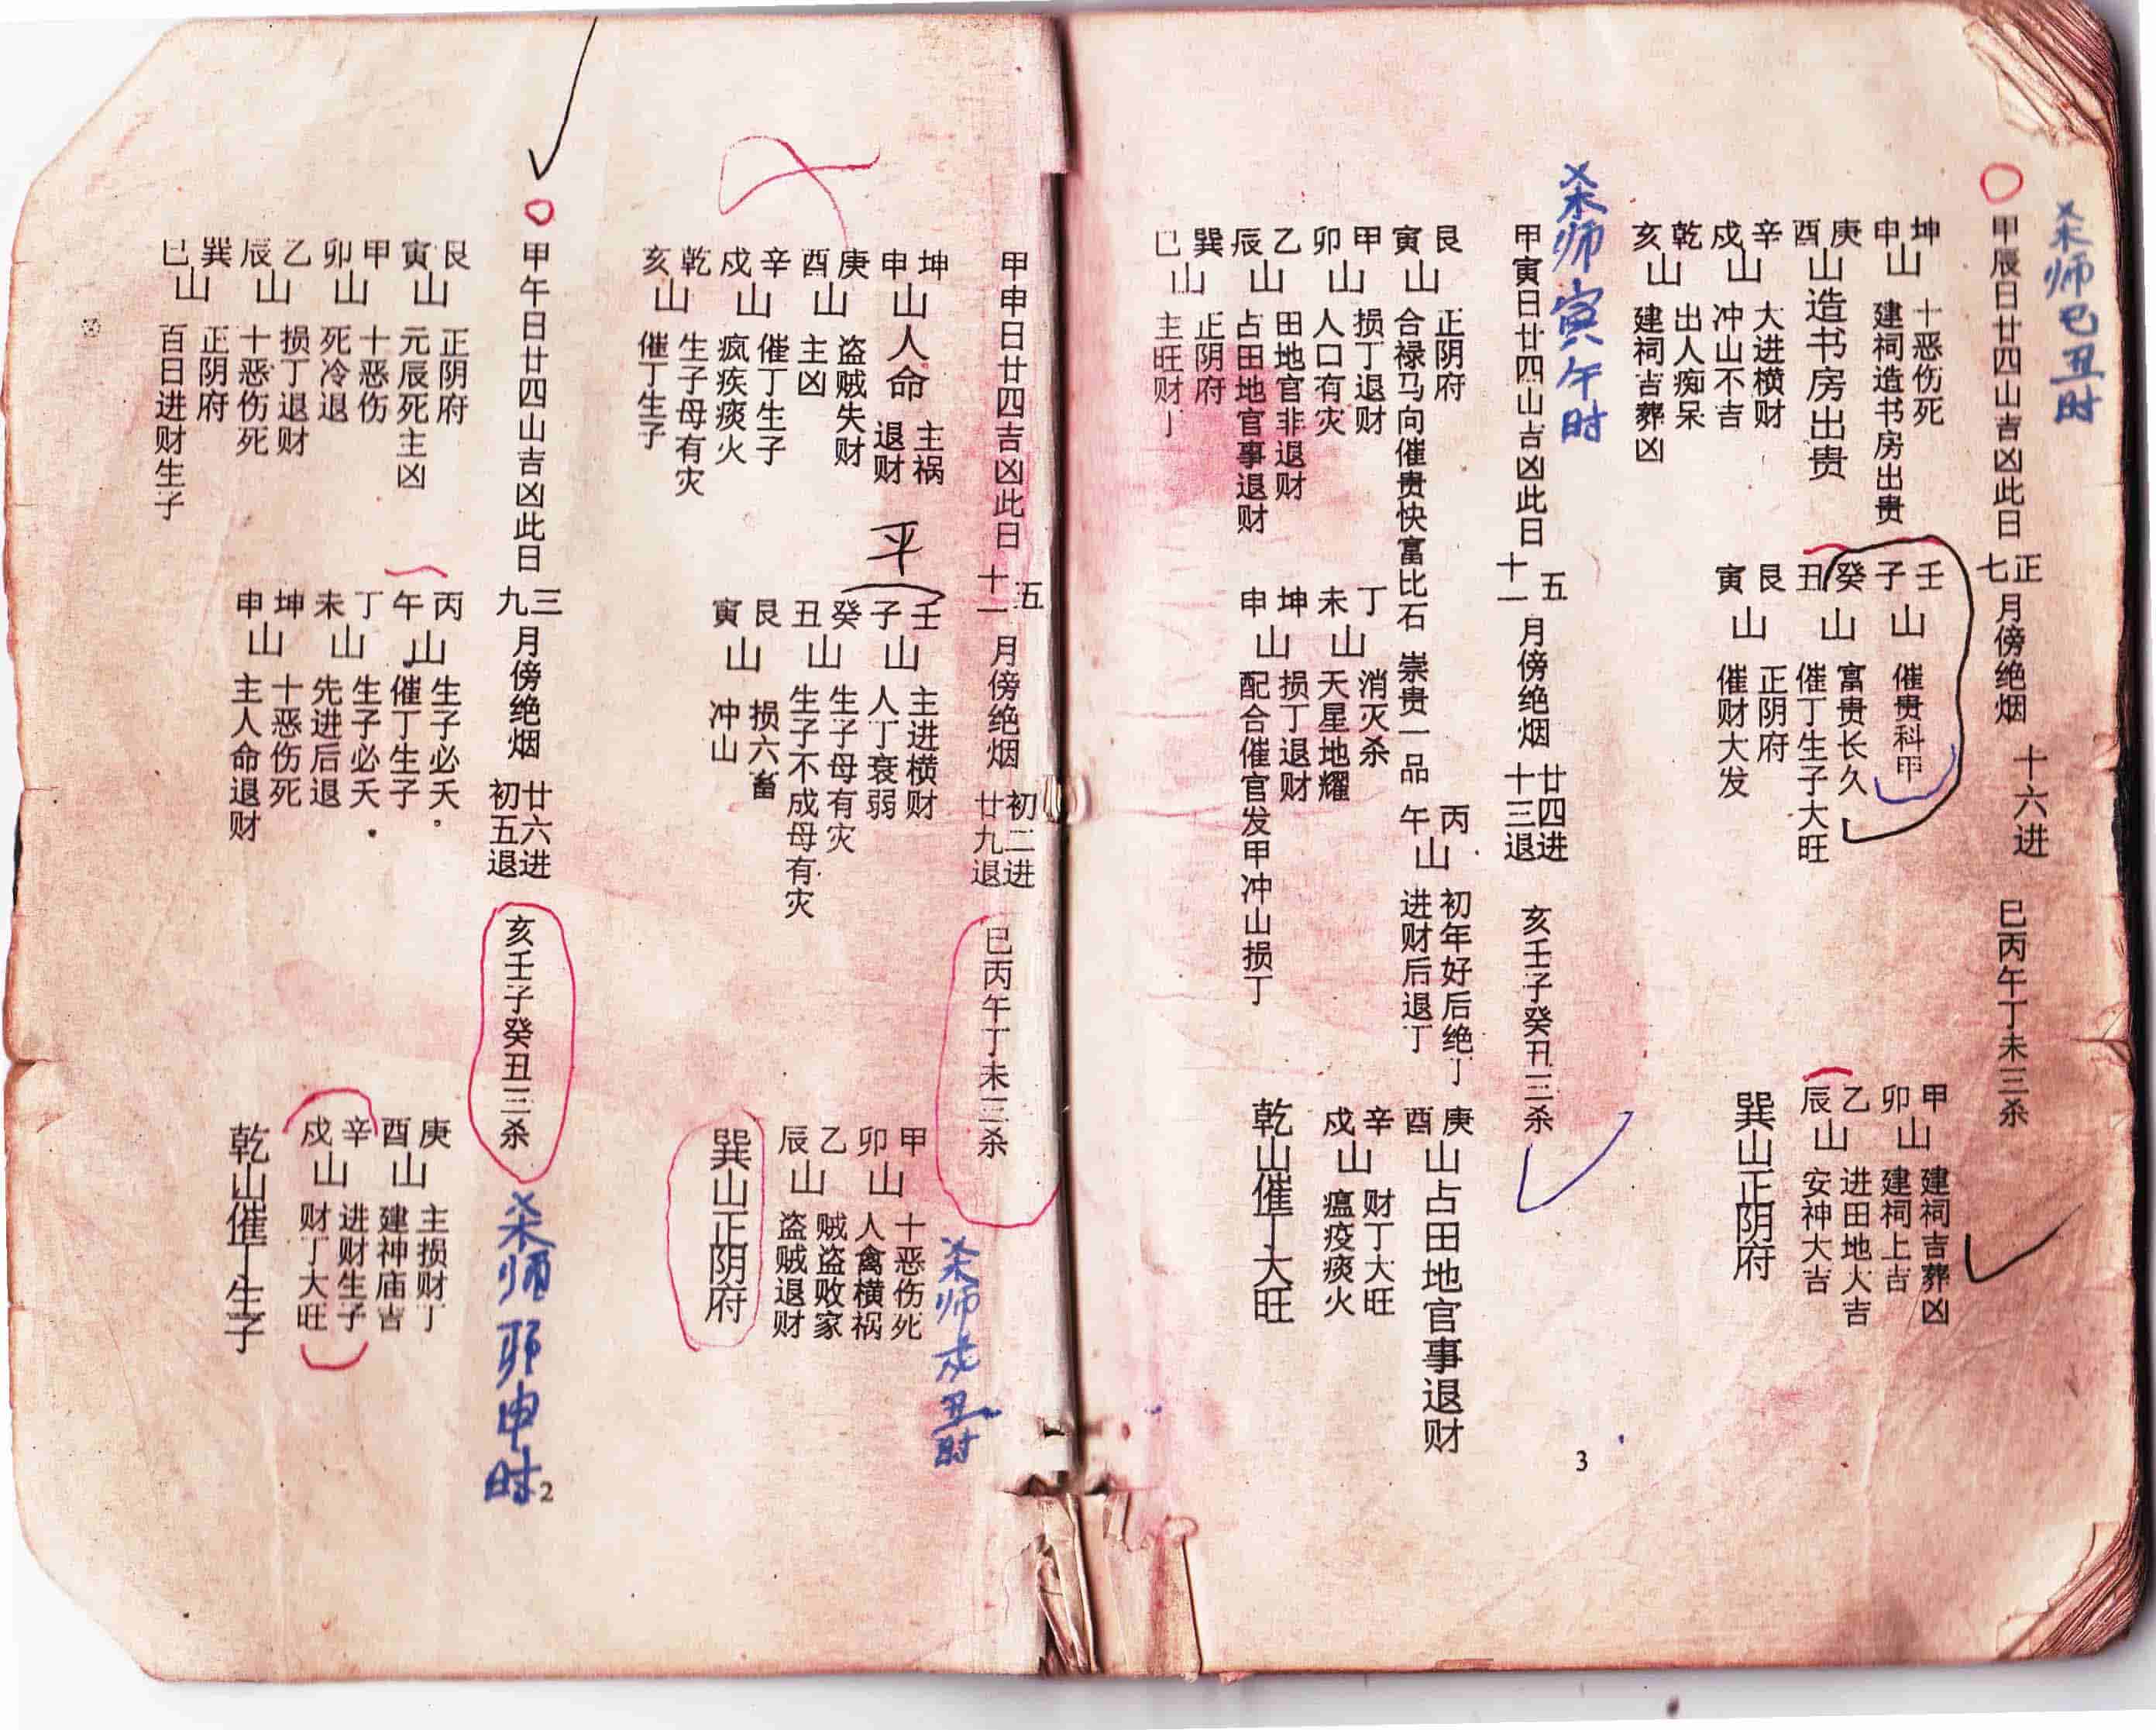 杀师巳丑时
甲辰日廿四山吉凶此日 正七月傍绝烟 十六进 巳丙午丁未三杀
坤申山 十恶伤死 建祠造书房出贵
庚酉山造书房出贵
辛戌山 大进横财 冲山不吉
乾亥山 出人痴呆 建祠吉葬凶
壬子山 催贵科甲
癸丑山 富贵长久 催丁生子大旺
艮寅山 正阴府 催财大发
甲卯山 建祠吉葬凶 建祠上吉
乙辰山 进田地人吉 安神大吉
巽山正阴府
杀师寅午时
甲寅日廿四山吉凶此日 五十一月傍绝烟 廿四进十三退 亥壬子癸丑三杀
艮寅山 正阴府 合禄马向催贵快富比石崇贵一品
甲卯山 损丁退财 人口有灾
乙辰山 田地官非退财 占田地官事退财
巽巳山 正阴府 主旺财丁
丙午山 初年好后绝丁 进财后退丁
丁未山 消灭杀 天星地耀
坤申山 损丁退财 配合催官发甲冲山损丁
庚酉山占田地官事退财
辛戌山 财丁大旺 瘟疫痰火
乾山催丁大旺
3
甲申日廿四吉凶此日 五十一月傍绝烟 初二进廿九退 巳丙午丁未三杀
杀师戌丑时
坤申山人命 主祸 退财
庚酉山 盗贼失财 主凶
辛戌山 催丁生子 疯疾痰火
乾亥山 生子母有灾 催丁生子
平
壬子山 主进横财 人丁衰弱
癸丑山 生子母有灾 生子不成母有灾
艮寅山 损六畜 冲山
甲卯山 十恶伤死 人禽横祸
乙辰山 贼盗败家 盗贼退财
巽山正阴府
甲午日廿四山吉凶此日 三九月傍绝烟 廿六进初五退 亥壬子癸丑三杀
杀师 卯申时
艮寅山 正阴府 元辰死主凶
甲卯山 十恶伤 死冷退
乙辰山 损丁退财 十恶伤死
巽巳山 正阴府 百日进财生子
丙午山 生子必夭。 催丁生子
丁未山 生子必夭 先进后退
坤申山 十恶伤死 主人命退财
庚酉山 主损财丁 建神庙吉
辛戌山 进财生子 财丁大旺
乾山催丁生子
2